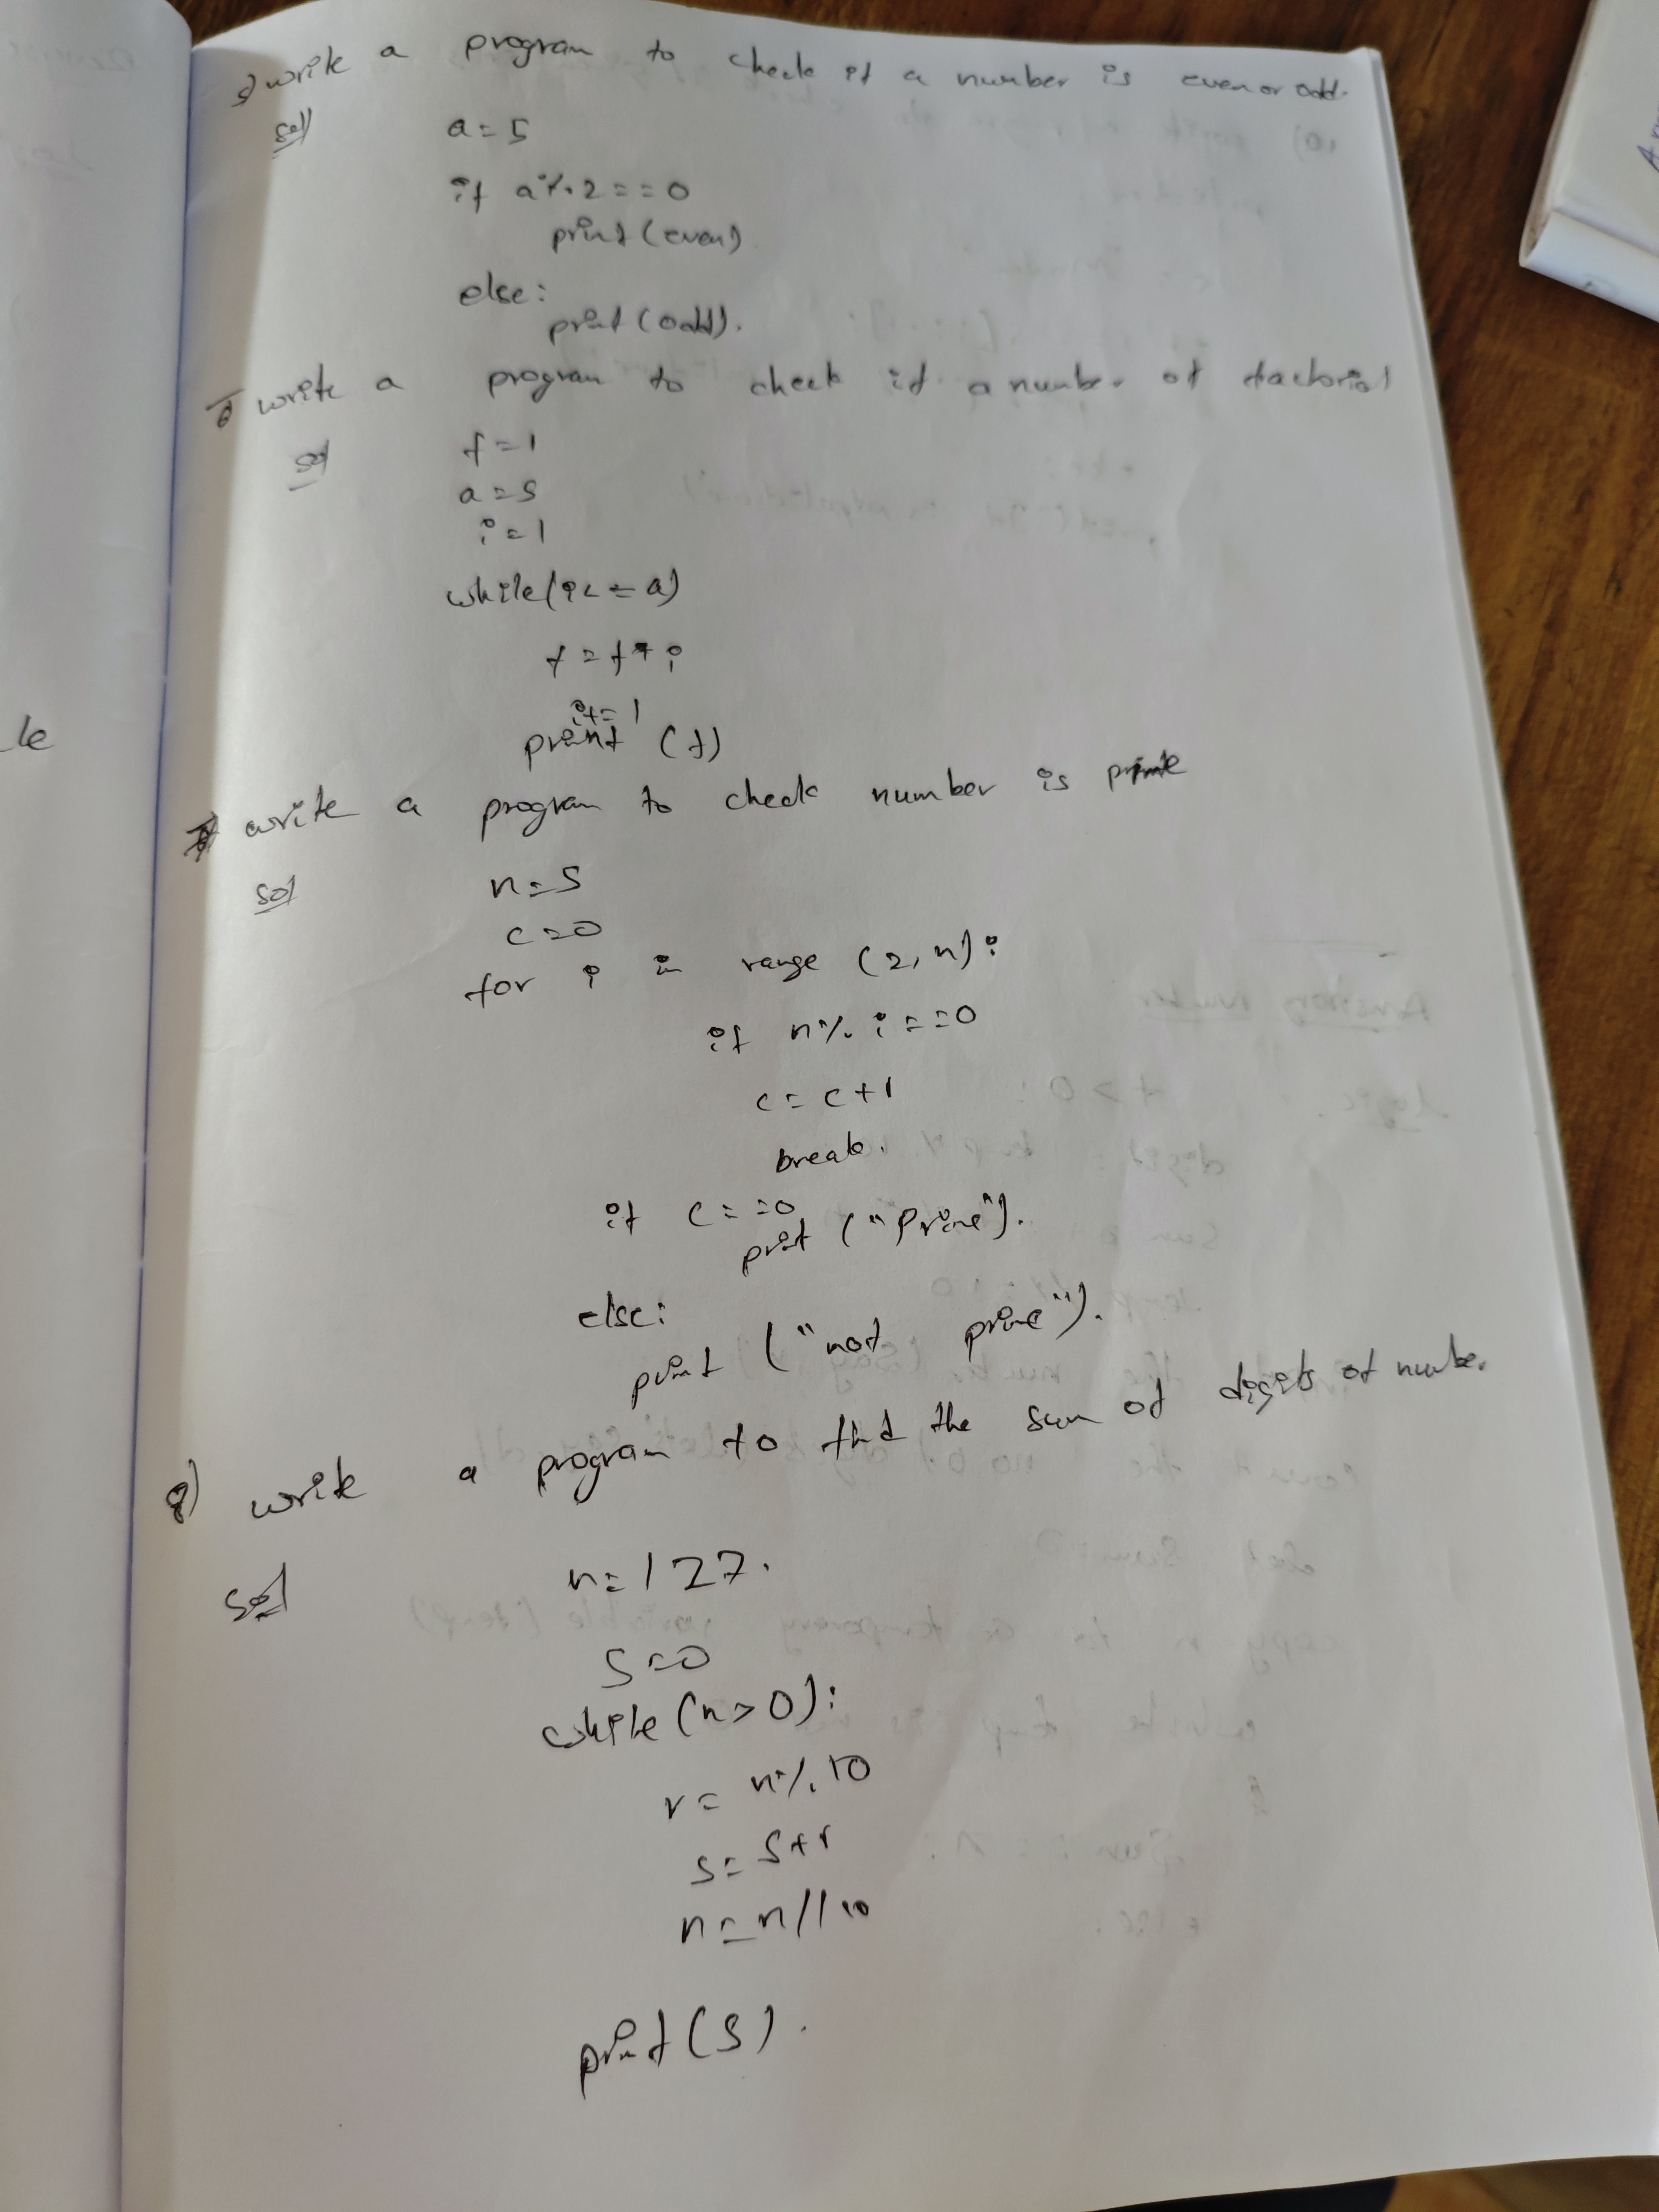 5) write a program to check if a number is even or odd.
sol) a=5
if a%2==0
print(even)
else:
print(odd).
write a program to check if a number of factorial
sol f=1
a=5
i=1
while(i<=a)
f=f*i
i+=1
print (f)
write a program to check number is prime
sol n=5
c=0
for i in range (2,n):
if n%i==0
c=c+1
break.
if c==0
print ("Prime").
else:
print ("not prime").
8) write a program to find the sum of digits of number
sol n=127.
s=0
while(n>0):
r=n%10
s=s+r
n=n//10
print(s).
le